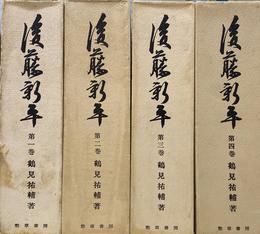 後藤新平
第一巻 鶴見祐輔著
勁草書房
後藤新平
第二巻 鶴見祐輔著
勁草書房
後藤新平
第三巻 鶴見祐輔著
勁草書房
後藤新平
第四巻 鶴見祐輔著
勁草書房